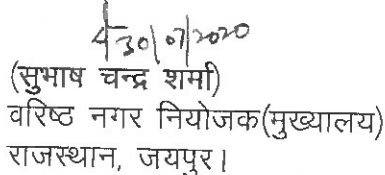 30/07/2020
(सुभाष चन्द्र शर्मा)
वरिष्ठ नगर नियोजक(मुख्यालय)
राजस्थान, जयपुर।